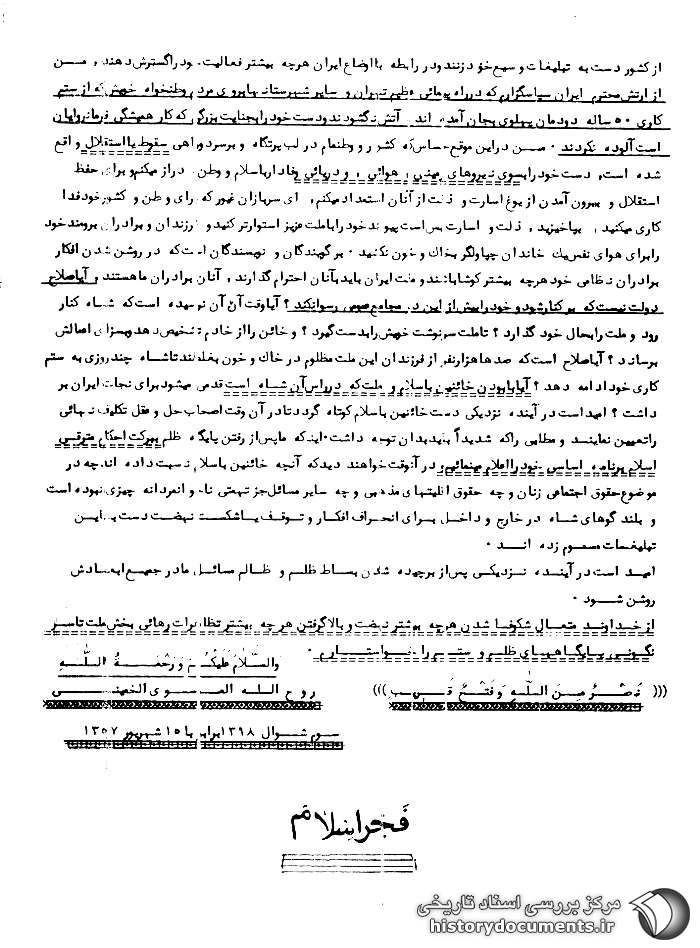 از کشور دست به تبلیغات وسیع خود زنند و در رابطه با اوضاع ایران هرچه بیشتر فعالیت خود را گسترش دهند , من
از ارتش محترم ایران سپاسگزارم که در راه پیمائی عظیم تهران و سایر شهرستانها بروی مردم وطنخواه خویش که از ستم
کاری ۵۰ ساله دودمان پهلوی بجان آمده اند آتش نگشودند و دست خود را بجنایت بزرگی که کار همیشگی فرمانروایان
است آلوده نکردند ۰ من در این موقع حساس که کشور و وطنمام در لب پرتگاه و بر سر دوراهی سقوط یا استقلال واقع
شده است, دست خود را بسوی نیروهای زمینی , هوائی , و دریائی وفادار باسلام و وطن دراز میکنم و برای حفظ
استقلال و بیرون آمدن از یوغ اسارت و ذلت از آنان استمداد میکنم , ای سربازان غیور که برای وطن و کشور خود فدا
کاری میکنید , بپاخیزید , ذلت و اسارت بس است پیوند خود را با ملت عزیز استوارتر کنید و فرزندان و برادران برومند خود
را برای هوای نفس یک خاندان چپاولگر بخاک و خون نکشید ۰ بر گویندگان و نویسندگان است که در روشن شدن افکار
برادران نظامی خود هرچه بیشتر کوشا باشند و ملت ایران باید بآنان احترام گذارند , آنان برادران ما هستند , آیا صلاح
دولت نیست که برکنار شود و خود را بیش از این در مجامع عمومی رسوا نکند ؟ آیا وقت آن آن نرسیده است که شاه کنار
رود و ملت را بحال خود گذارد ؟ تا ملت سرنوشت خویش را بدست گیرد ؟ و خائن را از خادم تشخیص دهد و بسزای اعمالش
برساند ؟ آیا صلاح است که صدها هزار نفر از فرزندان این ملت مظلوم در خاک و خون بغلطند تا شاه چند روزی به ستم
کاری خود ادامه دهد ؟ آیا با بودن خائنین باسلام و ملت که در راس آن شاه است قدمی میشود برای نجات ایران بر
داشت ؟ امید است در آینده نزدیکی دست خائنین باسلام کوتاه گردد تا در آن وقت اصحاب حل و عقل تکلیف نهائی
را تعیین نمایند و مطلبی را که شدیداً باید بدان توجه داشت اینکه ما پس از رفتن پایگاه ظلم ببرکت احکام مترقی
اسلام برنامه اساسی خود را اعلام مینمائیم, در آنوقت خواهند دید که آنچه خائنین باسلام نسبت داده اند چه در
موضوع حقوق اجتماعی زنان و چه حقوق اقلیتهای مذهبی و چه سایر مسائل جز تهمتی ناجوانمردانه چیزی نبوده است
و بلندگوهای شاه در خارج و داخل برای انحراف افکار و توقف یا شکست نهضت دست باین
تبلیغات مسموم زده اند ۰
امید است در آینده نزدیکی پس از برچیده شدن بساط ظلم و ظالم مسائل ما در جمیع ابعادش
روشن شود ۰
از خداوند متعال شکوفا شدن هرچه بیشتر نهضت و بالا گرفتن هرچه بیشتر تظاهرات رهائی بخش ملت تا سر
نگونی پایگاههای ظلم و ستم را خواستارم ۰
والسلام علیکم و رحمة اللّه
((( نصر من اللّه و فتح قریب )))
روح الله الموسوی الخمینی
سوم شوال ۱۳۹۸ برابر با ۱۵ شهریور ۱۳۵۷
فجر اسلام
مرکز بررسی اسناد تاریخی
historydocuments.ir